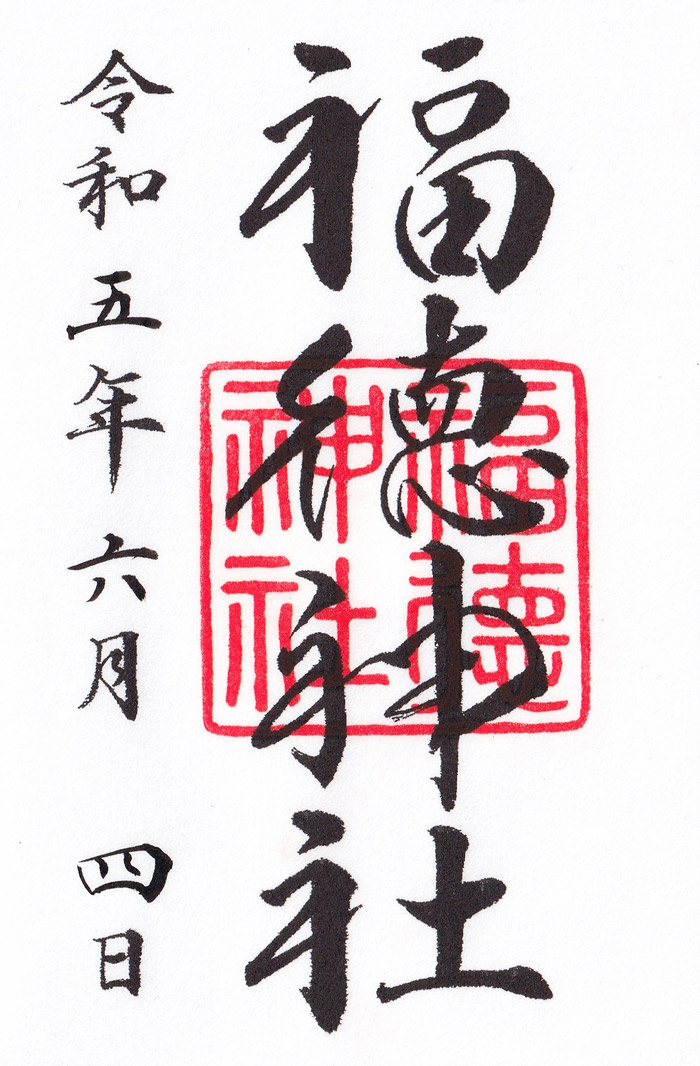 福徳神社
福徳神社
令和五年六月四日